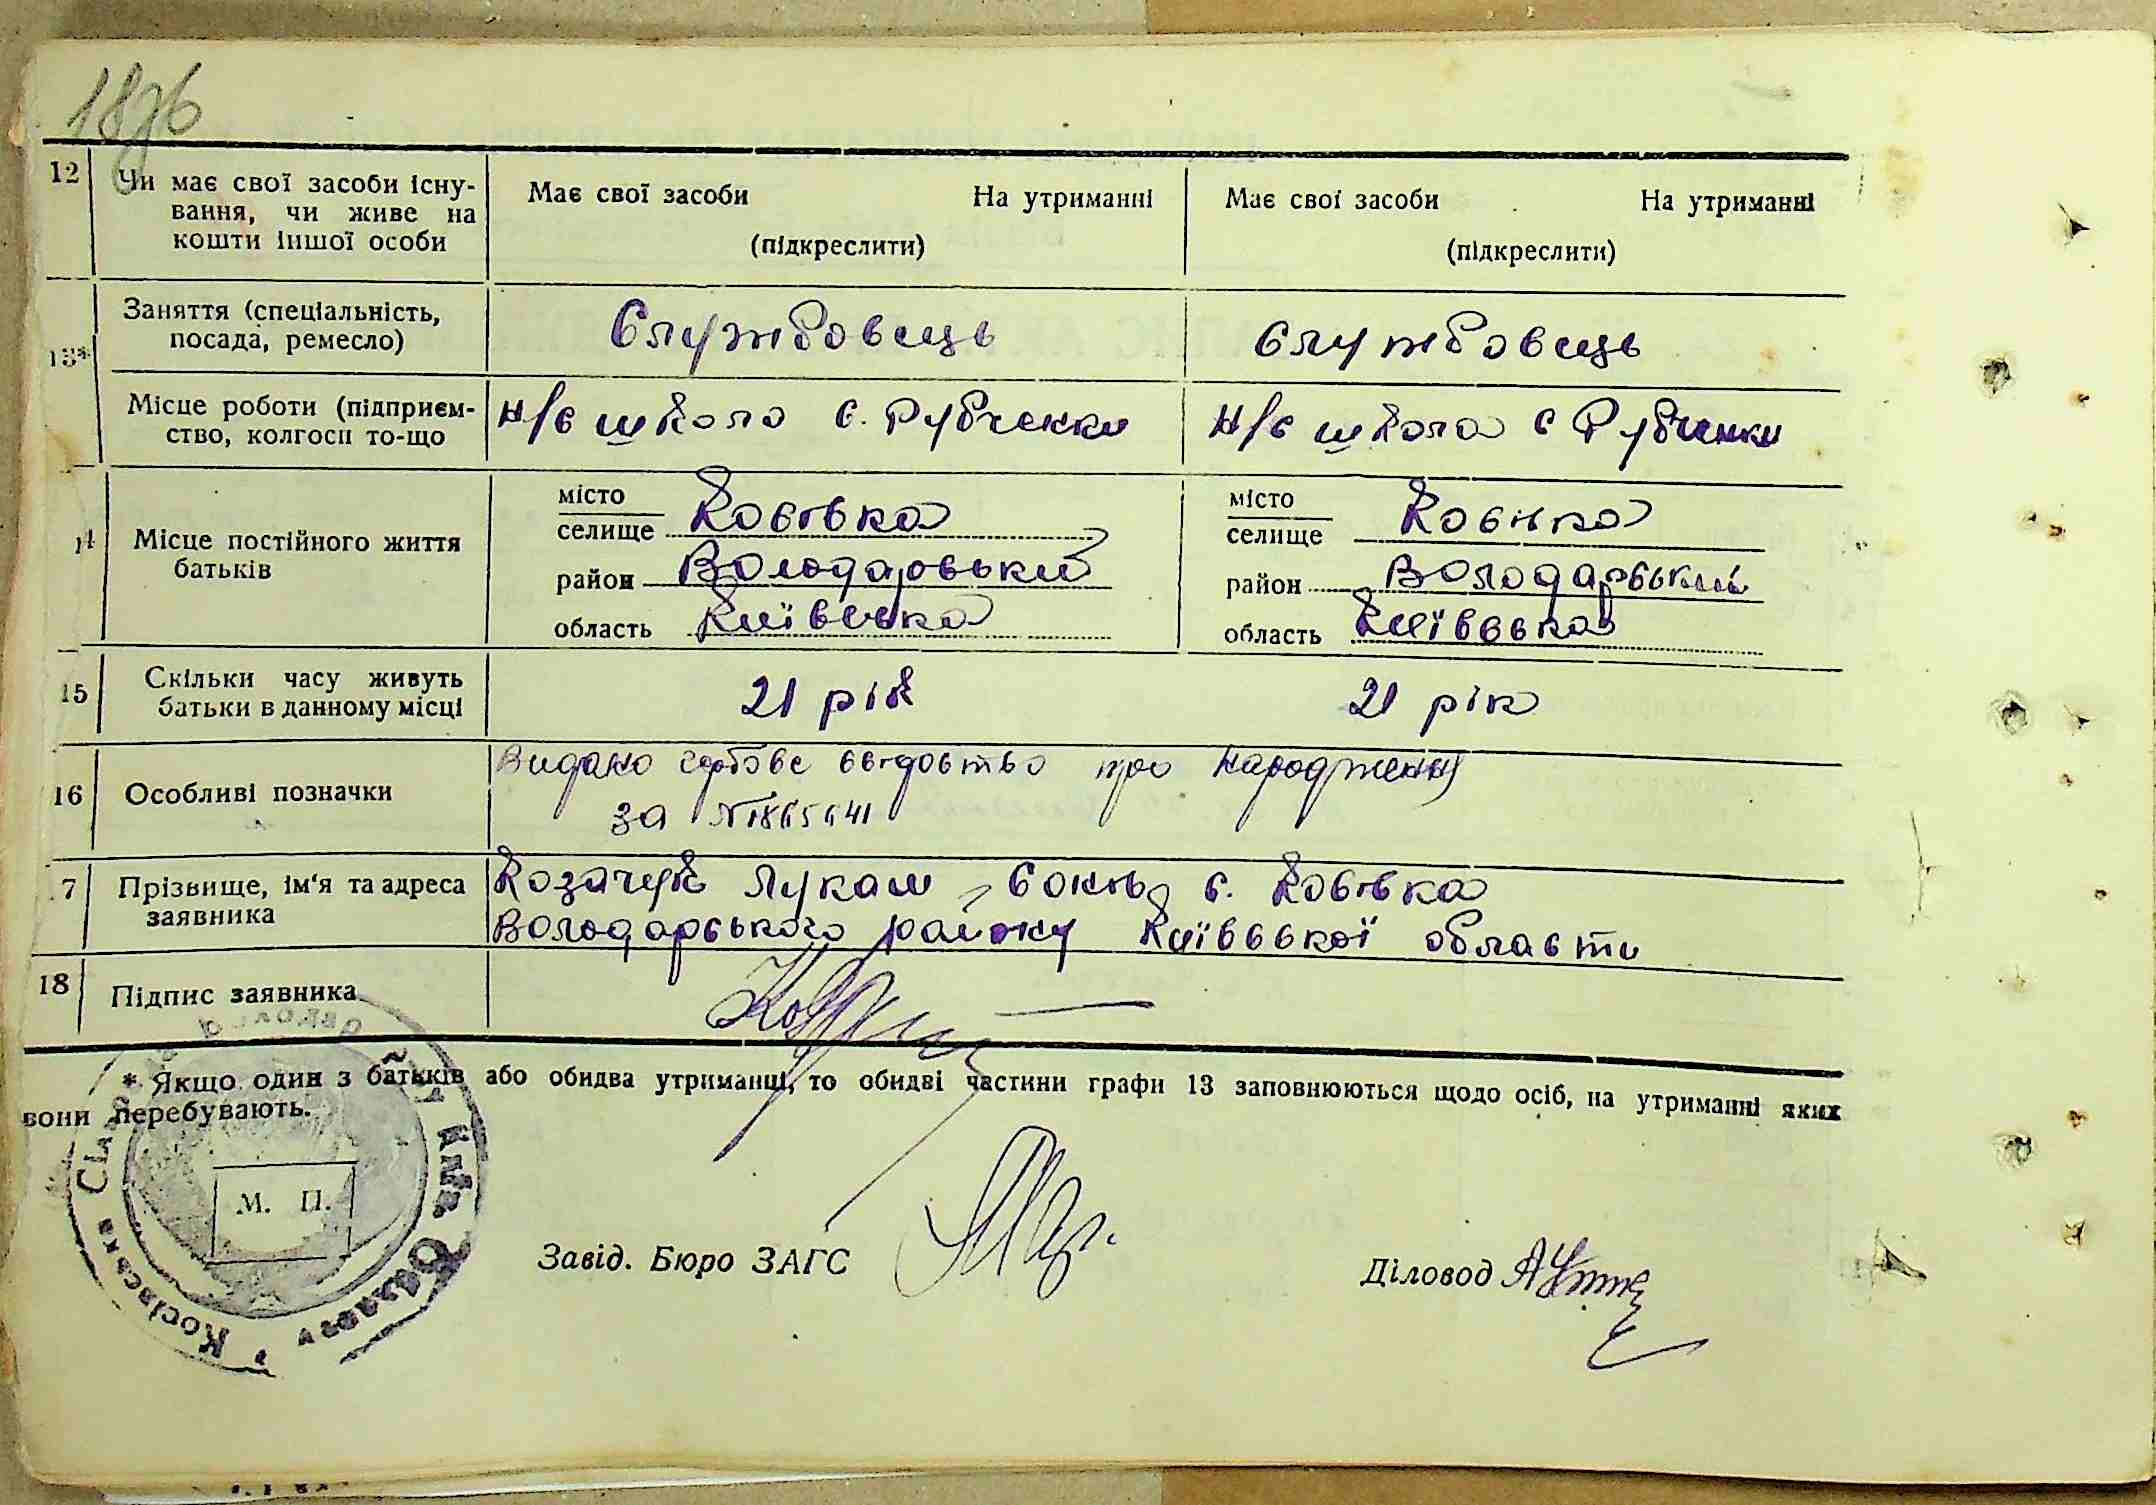 12 Чи має свої засоби існу-
вання, чи живе на
кошти іншої особи
Має свої засоби На утриманні
(підкреслити)
Має свої засоби На утриманні
(підкреслити)
13* Заняття (спеціальність,
посада, ремесло)
Службовець
Службовець
Місце роботи (підприєм-
ство, колгосп то-що
Н/с школа с. Рубченки
Н/с школа с Рубченки
14 Місце постійного життя
батьків
місто
селище Косівка
район Володарський
область Київська
місто
селище Косівка
район Володарський
область Київська
15 Скільки часу живуть
батьки в данному місці
21 рік
21 рік
16 Особливі позначки
Видано свідоство про народження
за №
17 Прізвище, ім'я та адреса
заявника
Козачук Лукаш с. Косівка
Володарського району Київської области
18 Підпис заявника
* Якщо один з батьків або обидва утриманці, то обидві частини графи 13 заповнюються щодо осіб, на утриманні яких
вони перебувають.
М. П.
Косівська
Завід. Бюро ЗАГС
Діловод